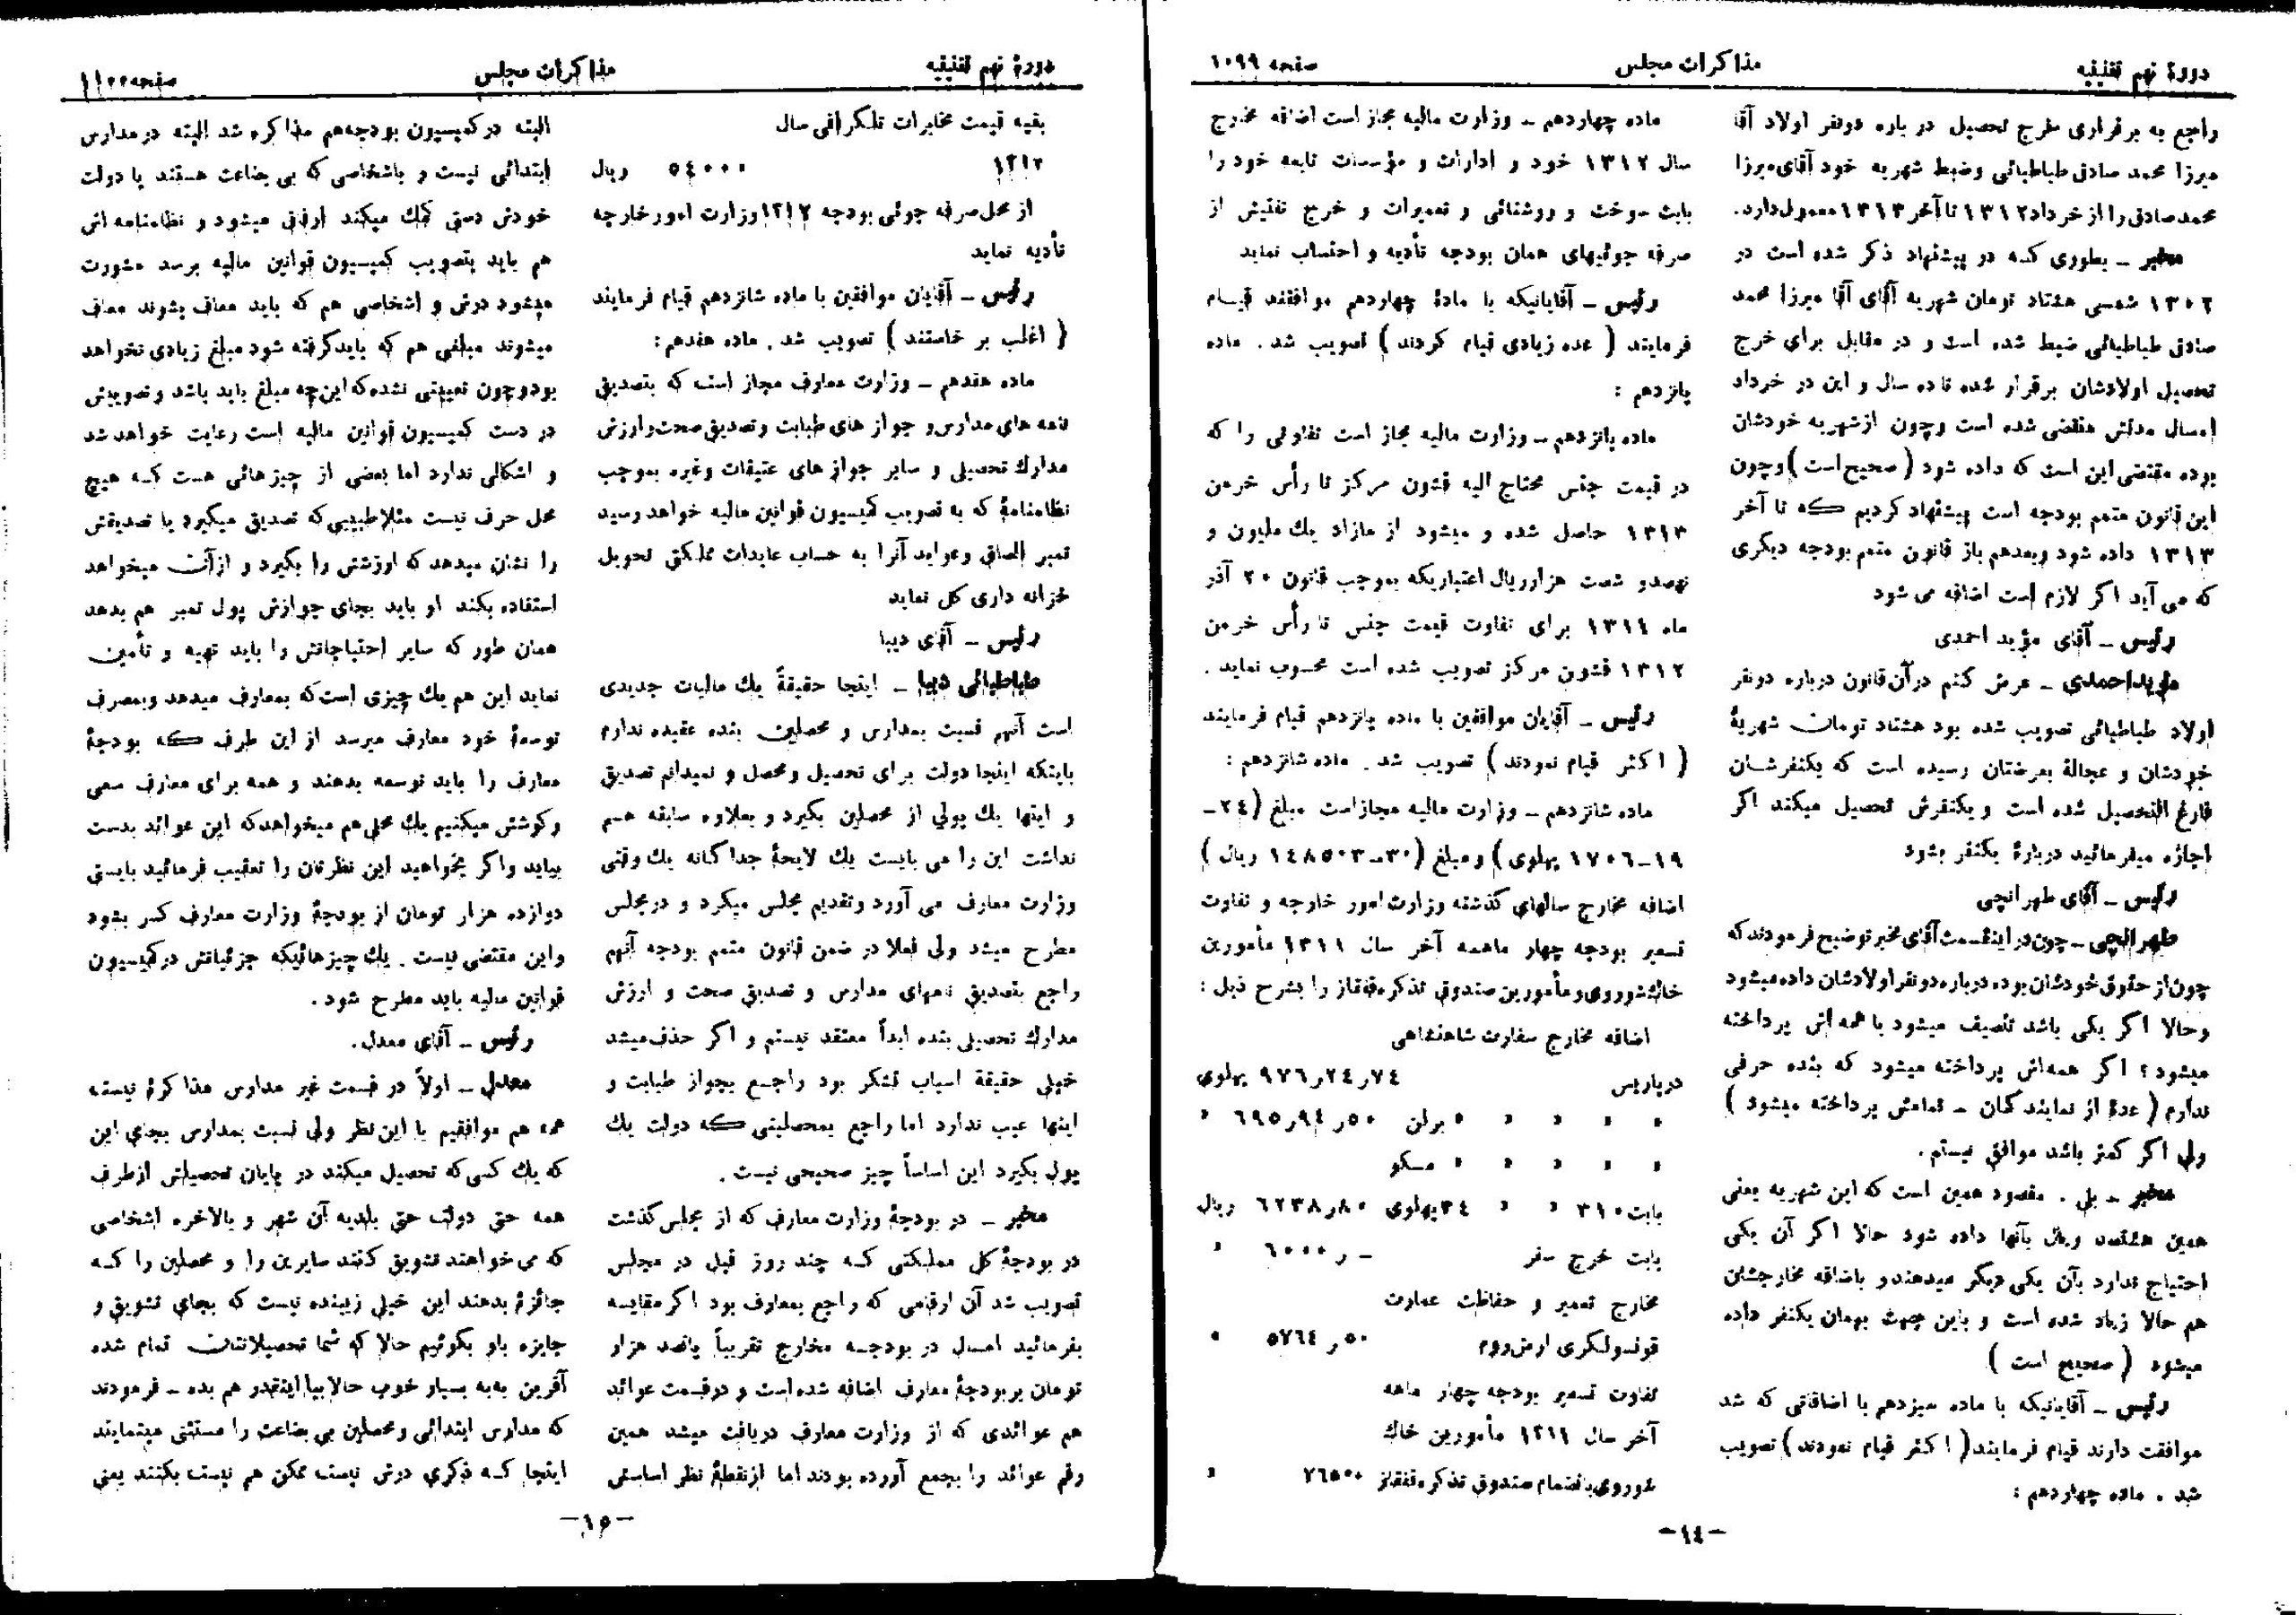 دورۀ نهم تقنینیه
مذاکرات مجلس
صفحه ۱۰۹۹
راجع به برقراری خرج تحصیل در باره دونفر اولاد آقا
میرزا محمد صادق طباطبائی وضبط شهریه خود آقای میرزا
محمد صادق را از خرداد ۱۳۱۲ تا آخر ۱۳۱۳ معمول دارد.
مخبر ــ بطوری که در پیشنهاد ذکر شده است در
۱۳۰۲ شمسی هشتاد تومان شهریه آقای آقا میرزا محمد
صادق طباطبائی ضبط شده است و در مقابل برای خرج
تحصیل اولادشان برقرار شده تا ده سال و این در خرداد
امسال مدتش منقضی شده است وچون از شهریه خودشان
بوده مقتضی این است که داده شود (صحیح است) وچون
این قانون متمم بودجه است پیشنهاد کردیم که تا آخر
۱۳۱۳ داده شود وبعدهم باز قانون متمم بودجه دیگری
که می آید اگر لازم است اضافه می شود
رئیس ــ آقای مؤید احمدی
مؤید احمدی ــ عرض کنم در آن قانون درباره دونفر
اولاد طباطبائی تصویب شده بود هشتاد تومان شهریۀ
خودشان و عجالة بعرضتان رسیده است که یکنفرشان
فارغ التحصیل شده است و یکنفرش تحصیل میکند اگر
اجازه میفرمائید دربارۀ یکنفر بشود
رئیس ــ آقای طهرانچی
طهرانچی ــ چون در اینقسمت آقای مخبر توضیح فرمودند که
چون از حقوق خودشان بوده درباره دونفر اولادشان داده میشود
وحالا اگر یکی باشد تنصیف میشود یا همه اش پرداخته
میشود؟ اگر همه‌اش پرداخته میشود که بنده حرفی
ندارم (عدۀ از نمایندگان ــ تمامش پرداخته میشود)
ولی اگر کمتر باشد موافق نیستم.
مخبر ــ بلی . مقصود همین است که این شهریه یعنی
همین هشتصد ریال بآنها داده شود حالا اگر آن یکی
احتیاج ندارد بآن یکی دیگر میدهند و باضافه مخارجشان
هم حالا زیاد شده است و باین جهت بهمان یکنفر داده
میشود (صحیح است)
رئیس ــ آقایانیکه با ماده سیزدهم با اضافاتی که شد
موافقت دارند قیام فرمایند (اکثر قیام نمودند) تصویب
شد . ماده چهاردهم :
ماده چهاردهم ــ وزارت مالیه مجاز است اضافه مخارج
سال ۱۳۱۲ خود و ادارات و مؤسسات تابعه خود را
بابت سوخت و روشنائی و تعمیرات و خرج تفتیش از
صرفه جوئیهای همان بودجه تأدیه و احتساب نماید
رئیس ــ آقایانیکه با مادۀ چهاردهم موافقند قیام
فرمایند (عده زیادی قیام کردند) تصویب شد . ماده
پانزدهم :
ماده پانزدهم ــ وزارت مالیه مجاز است تفاوتی را که
در قیمت جنس محتاج الیه قشون مرکز تا رأس خرمن
۱۳۱۳ حاصل شده و میشود از مازاد یك ملیون و
نهصدو شصت هزارریال اعتباریکه بموجب قانون ۲۰ آذر
ماه ۱۳۱۱ برای تفاوت قیمت جنس تا رأس خرمن
۱۳۱۲ قشون مرکز تصویب شده است محسوب نماید .
رئیس ــ آقایان موافقین با ماده پانزدهم قیام فرمایند
(اکثر قیام نمودند) تصویب شد . ماده شانزدهم :
ماده شانزدهم ــ وزارت مالیه مجازاست مبلغ (۲۴ــ
۱۹ــ۱۷۰۶ پهلوی) ومبلغ (۳۰ــ۱۴۸۵۰۳ ریال)
اضافه مخارج سالهای گذشته وزارت امور خارجه و تفاوت
تسعیر بودجه چهار ماهه آخر سال ۱۳۱۱ مأمورین
خاك شوروی و مأمورین صندوق تذکره قفقاز را بشرح ذیل :
اضافه مخارج سفارت شاهنشاهی
در پاریس ۷۴ر۲۴ر۹۷۶ پهلوی
» » » » » برلن ۵۰ر۹۴ر۶۹۵ »
» » » » » مسکو
بابت ۳۱۰ » » ۳۴پهلوی ۸۰ر۶۲۳۸ ریال
بابت خرج سفر ــ ر۶۰۰۰ »
مخارج تعمیر و حفاظت عمارت
قونسولگری ارض روم ۵۰ر۵۷۶۴ »
تفاوت تسعیر بودجه چهار ماهه
آخر سال ۱۳۱۱ مأمورین خاك
شوروی بانضمام صندوق تذکره قفقاز ۷۶۵۰۰ »
ــ۱۴ــ
دورۀ نهم تقنینیه
مذاکرات مجلس
صفحه ۱۱۰۰
بقیه قیمت مخابرات تلگرافی سال
۱۳۱۲ ۵۴۰۰۰ ریال
از محل صرفه جوئی بودجه ۱۳۱۲ وزارت امور خارجه
تأدیه نماید
رئیس ــ آقایان موافقین با ماده شانزدهم قیام فرمایند
(اغلب بر خاستند) تصویب شد . ماده هفدهم :
ماده هفدهم ــ وزارت معارف مجاز است که بتصدیق
نامه های مدارس و جواز های طبابت وتصدیق صحت وارزش
مدارك تحصیلی و سایر جواز های عتیقات وغیره بموجب
نظامنامۀ که به تصویب کمیسیون قوانین مالیه خواهد رسید
تمبر الصاق وعواید آنرا به حساب عایدات مملکتی تحویل
خزانه داری کل نماید
رئیس ــ آقای دیبا
طباطبائی دیبا ــ اینجا حقیقةً یك مالیات جدیدی
است آنهم نسبت بمدارس و محصلین بنده عقیده ندارم
باینکه اینجا دولت برای تحصیل ومحصل و نمیدانم تصدیق
و اینها یك پولی از محصلین بگیرد و بعلاوه سابقه هم
نداشت این را می بایست یك لایحۀ جداگانه یك وقتی
وزارت معارف می آورد وتقدیم مجلس میکرد و درمجلس
مطرح میشد ولی فعلا در ضمن قانون متمم بودجه آنهم
راجع بتصدیق نامهای مدارس و تصدیق صحت و ارزش
مدارك تحصیلی بنده ابداً معتقد نیستم و اگر حذف میشد
خیلی حقیقة اسباب تشکر بود راجع بجواز طبابت و
اینها عیب ندارد اما راجع بمحصلینی که دولت یك
پول بگیرد این اساساً چیز صحیحی نیست .
مخبر ــ در بودجۀ وزارت معارف که از مجلس گذشت
در بودجۀ کل مملکتی که چند روز قبل در مجلس
تصویب شد آن ارقامی که راجع بمعارف بود اگر مقایسه
بفرمائید امسال در بودجه مخارج تقریباً پانصد هزار
تومان بر بودجۀ معارف اضافه شده است و در قسمت عوائد
هم عوائدی که از وزارت معارف دریافت میشد همین
رقم عوائد را بجمع آورده بودند اما از نقطۀ نظر اساسش
البته در کمیسیون بودجه هم مذاکره شد البته در مدارس
ابتدائی نیست و باشخاصی که بی بضاعت هستند یا دولت
خودش دستی کمك میکند ارفاق میشود و نظامنامه اش
هم باید بتصویب کمیسیون قوانین مالیه برسد مشورت
میشود درش و اشخاصی هم که باید معاف بشوند معاف
میشوند مبلغی هم که بایدگرفته شود مبلغ زیادی نخواهد
بود وچون تعیینی نشده که این چه مبلغ باید باشد و تصویبش
در دست کمیسیون قوانین مالیه است رعایت خواهد شد
و اشکالی ندارد اما بعضی از چیز هائی هست که هیچ
محل حرف نیست مثلا طبیبی که تصدیق میگیرد یا تصدیقش
را نشان میدهد که ارزشش را بگیرد و از آن میخواهد
استفاده بکند او باید بجای جوازش پول تمبر هم بدهد
همان طور که سایر احتیاجاتش را باید تهیه و تأمین
نماید این هم یك چیزی است که بمعارف میدهد وبمصرف
توسعۀ خود معارف میرسد از این طرف که بودجۀ
معارف را باید توسعه بدهند و همه برای معارف سعی
وکوشش میکنیم یك محلی هم میخواهد که این عوائد بدست
بیاید واگر بخواهید این نظرتان را تعقیب فرمائید بایستی
دوازده هزار تومان از بودجۀ وزارت معارف کسر بشود
واین مقتضی نیست . یك چیزهائیکه جزئیاتش درکمیسیون
قوانین مالیه باید مطرح شود .
رئیس ــ آقای معدل .
معدل ــ اولاً در قسمت غیر مدارس مذاکرۀ نیست
همه هم موافقیم با این نظر ولی نسبت بمدارس بجای این
که یك کسی که تحصیل میکند در پایان تحصیلش ازطرف
همه حتی دولت حتی بلدیه آن شهر و بالاخره اشخاصی
که می خواهند تشویق کنند سایرین را و محصلین را که
جائزۀ بدهند این خیلی زیبنده نیست که بجای تشویق و
جایزه باو بگوئیم حالا که شما تحصیلاتتان تمام شده
آفرین به‌به بسیار خوب حالا بیا اینقدر هم بده ــ فرمودند
که مدارس ابتدائی ومحصلین بی بضاعت را مستثنی مینمایند
اینجا که ذکری درش نیست ممکن هم نیست بکنند یعنی
ــ۱۵ــ